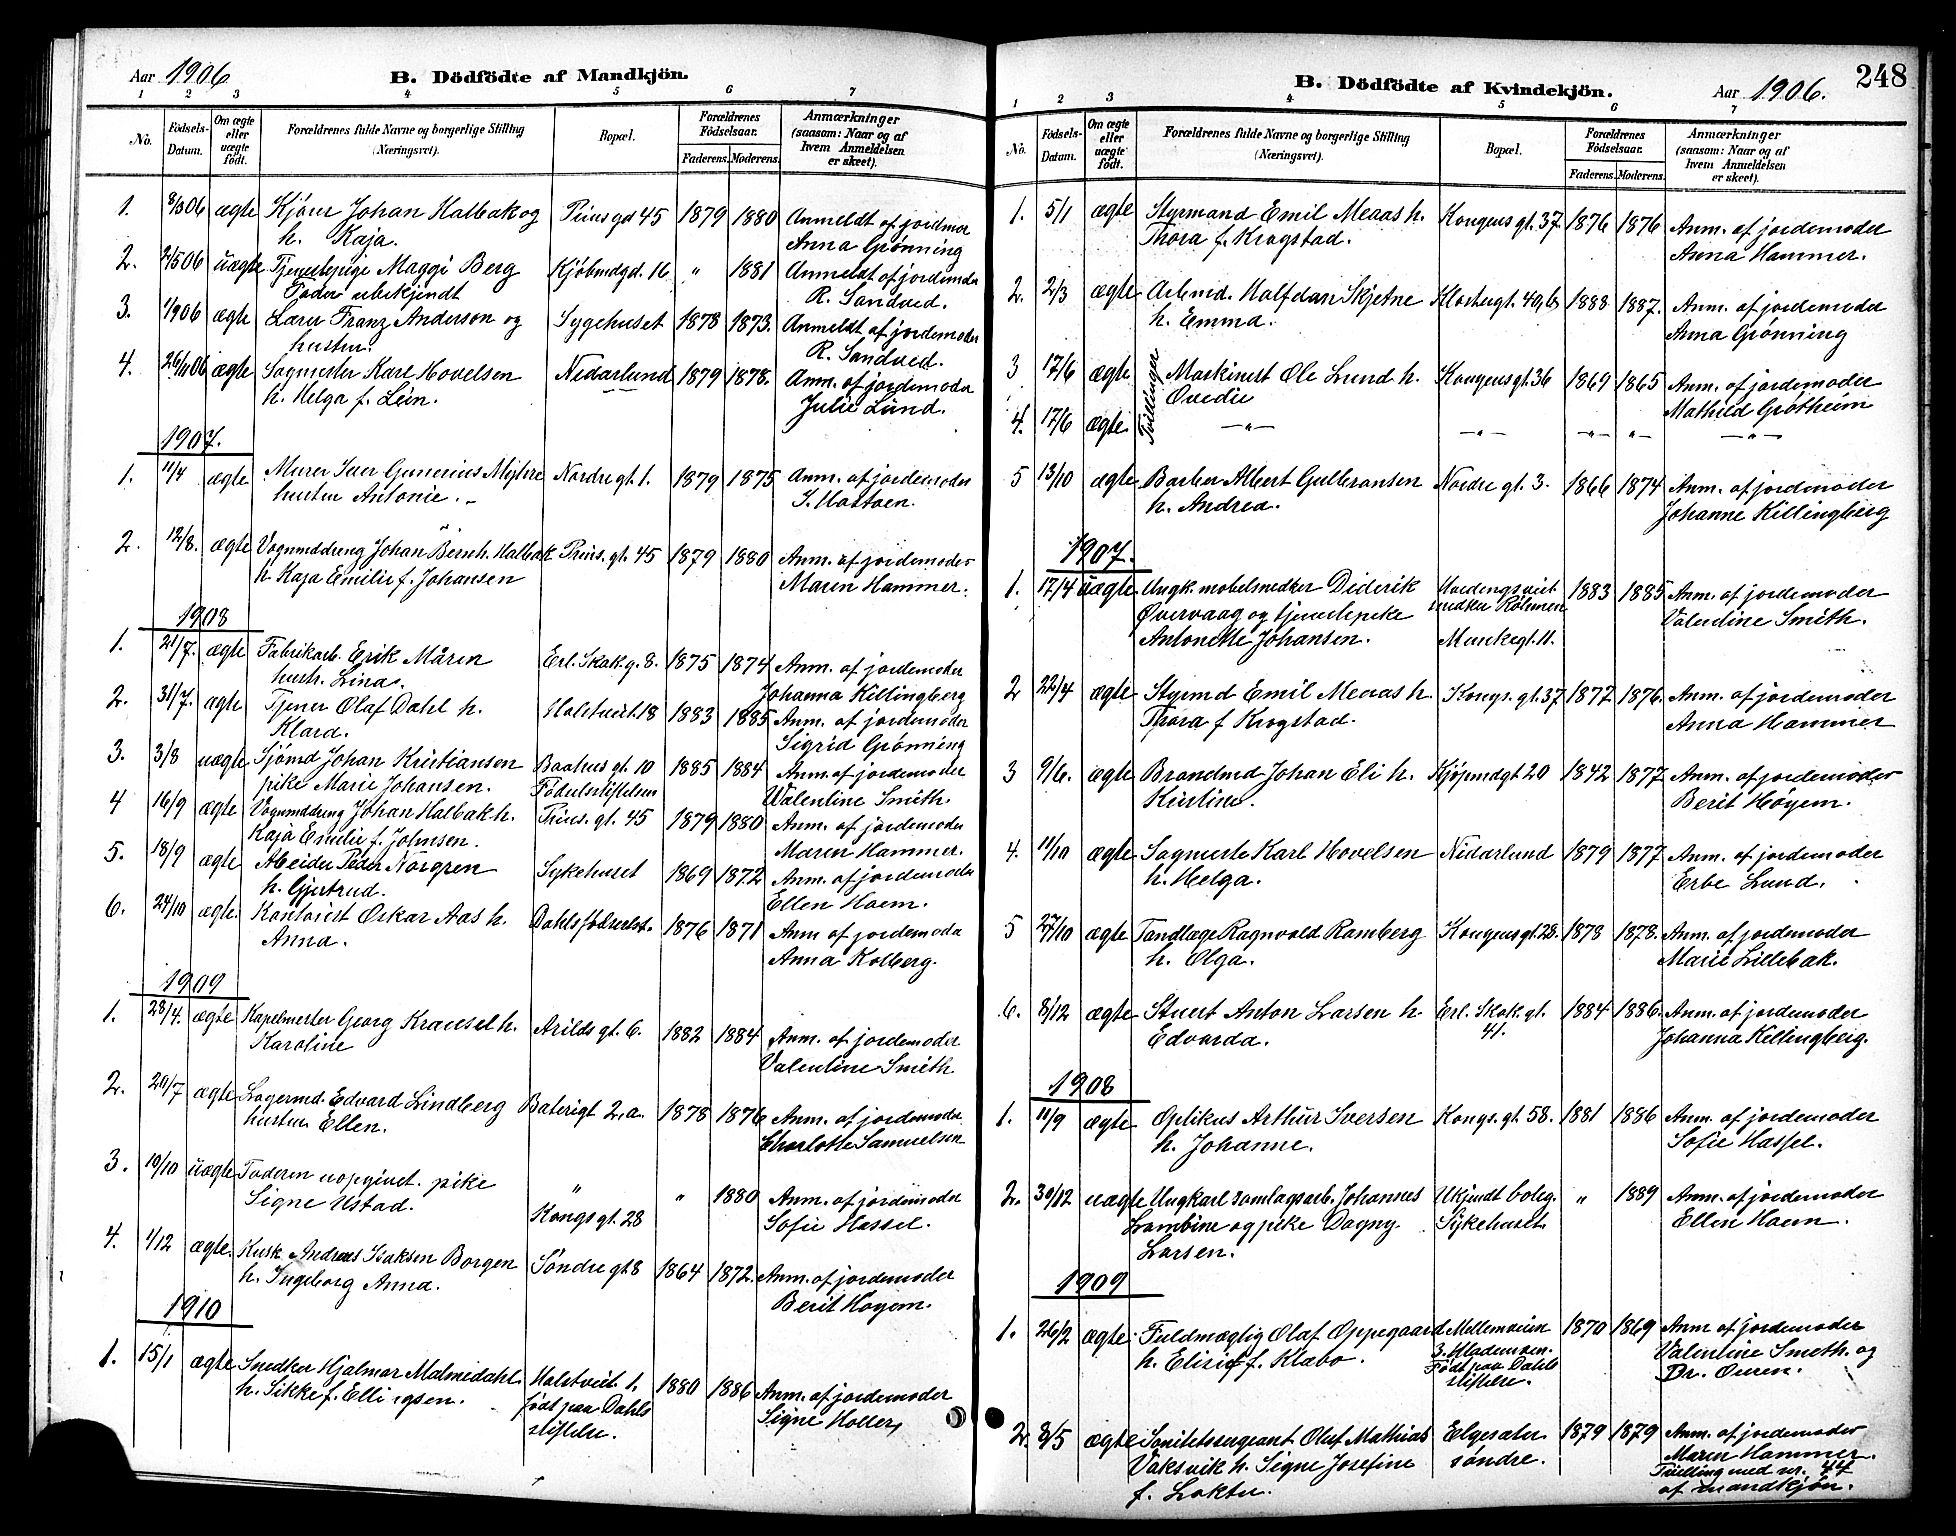 Aar 1906
B. Dödfödte af Mandkjön.
1 2 3 4 5 6 7
No.
Födsels-Datum.
Om ægte eller uægte födt.
Forældrenes fulde Navne og borgerlige Stilling (Næringsvei).
Bopæl.
Forældrenes Födselsaar.
Faderens. Moderens.
Anmærkninger (saasom: Naar og af hvem Anmeldelsen er skeet).
1. 8/3 06 ægte Kjører Johan Halbak og Prinsgd 45 1879 1880 Anmeldt af jordmor
h. Kaja. Anna Grønning
2. 2/5 06 uægte Tjenestepige Maggi Berg Kjøbmdgd. 16 " 1881 Anmeldt af jordmoda
Fader ubekjendt R. Sandved.
3. 1/9 06 ægte Lærer Franz Anderson og Sygehuset 1878 1873. Anmeldt af jordemoder
hustru. R. Sandved.
4. 26/11 06 ægte Sagmester Karl Hovelsen Nidarlund 1879 1878. Anm. af jordemoder
h. Helga f. Lein. Julie Lund.
1907.
1. 11/4 ægte Murer Iver Gunerius Nordre gt. 1. 1879 1875 Anm. af jordemoder
hustru Antonie.
2. 12/8. ægte Vognmddreng Johan Bernh. Halbak Prins. gt. 45 1879 1880 Anm. af jordemoder
h Kaja Emilie f. Johansen Maren Hammer.
1908
1. 21/7. ægte Fabrikarb. Erik Måren Erl. Skak. g. 8. 1875 1874 Anm. af jordemoder
hustr. Lina. Johanna Killingberg
2. 31/7. ægte Tjener Olaf Dahl h. Holstveit. 18 1883 1885 Anm. af jordemoder
Klara. Sigrid Grønning
3. 3/8 uægte Sjømd Johan Kristiansen Baahus gt. 10 1885 1884 Anm. af jordemoder
pike Marie Johansen. Födselsstiftelsen Valentine Smith.
4 16/9 ægte Vognmddreng Johan Halbak h. Prins. gt. 45 1879 1880 Anm. af jordemoder
Kaja Emilie f. Johnsen. Maren Hammer.
5. 18/9 ægte Arbeider Peder Norgren Sykehuset 1869 1872 Anm. af jordemoder
h. Gjertrud. Ellen Haem.
6. 24/10 ægte Kontorist Oskar Aas h. 1876 1871 Anm af jordemoda
Anna. Anna Kolberg.
1909
1. 28/4. ægte Kapelmester Georg Krausel h. Arilds gt. 6. 1882 1884 Anm. af jordemoder
Karoline Valentine Smith
2. 20/7 ægte Lagermd. Edvard Lindberg Baterigt 2.a. 1878 1876 Anm. af jordemoder.
hustru Ellen. Charlotte Samuelsen
3. 10/10 uægte Faderen uopgivet. pike " " 1880 Anm. af jordemoder
Signe Ustad. Kongs gt. 28 Sofie Hassel.
4. 1/12 ægte. Kusk Andreas Isaksen Borgen Søndre gt 8 1864 1872. Anm. af jordemoder
h. Ingeborg Anna. Berit Høyem.
1910
1. 15/1 ægte Snedker Hjalmar Malmedahl. Holstveit. 1. 1880 1886 Anm. af jordemoder
h. Sikke f. Ellingsen. født paa Dahls Signe Hollers
stiftelse.
248
B. Dödfödte af Kvindekjön.
Aar 1906.
1 2 3 4 5 6 7
No.
Födsels-Datum.
Om ægte eller uægte födt.
Forældrenes fulde Navne og borgerlige Stilling (Næringsvei).
Bopæl.
Forældrenes Födselsaar.
Faderens. Moderens.
Anmærkninger (saasom: Naar og af hvem Anmeldelsen er skeet).
1. 5/1 ægte Styrmand Emil Meaas h. Kongens gt. 37. 1876 1876 Anm. af jordemoder
Thora f. Krogstad. Anna Hammer.
2. 2/3 ægte Arbmd. Halfdan Skjetne Klostergt. 40,b 1888 1887. Anm. af jordemoder
h. Emma. Anna Grønning
Tvillinger
3 17/6 ægte Maskinist Ole Lund h. Kongens gt. 36 1869 1865 Anm. af jordemoder
Ovedie Mathild Grøtheim
4. 17/6 ægte. —"— —"— —"— —"— —"—
5 13/10 ægte Barber Albert Gulbransen Nordre gt. 3. 1866 1874 Anm. af jordemoder
h. Andrea. Johanne Killingberg
1907.
1. 17/4 uægte Ungk. mobelsnedker Diderik 1883 1885 Anm. af jordemoder
Øvervaag og tjenestepike Valentine Smith.
Antonette Johansen. Munkegt. 11.
2 22/4 ægte Styrmd Emil Meaas h. Kongs. gt. 37 1872 1876. Anm. af jordemoder
Thora f Krogstad. Anna Hammer
3 9/6. ægte Brandmd Johan Eli h. Kjøpmdgt 20 1842 1877 Anm. af jordemoder
Kristine. Berit Høyem.
4. 11/10 ægte Sagmeste Karl Hovelsen Nidarlund 1879 1877 Anm. af jordemoder
h. Helga. Erbe Lund.
5 27/10 ægte Tandlæge Ragnvald Ramberg Kongens gt. 28. 1878 1878. Anm. af jordemoder
h. Olga. Marie Lillebak.
6. 8/12 ægte Stuert Anton Larsen h. Erl. Skak. gt. 1884 1886. Anm. af jordemoder
Edvarda. 41. Johanna Killingberg.
1908
1. 11/9 ægte Optikus Arthur Iversen Kongs. gt. 58. 1881 1886 Anm. af jordemoder
h. Johanne. Sofie Hassel.
2. 30/12 uægte Ungkarl samlagsarb. Johannes Ukjendt boleg. " 1889 Anm. af jordemoder
Lambine og pike Dagny Sykehuset. Ellen Haem.
Larsen.
1909
1. 26/2 ægte. Fuldmægtig Olaf Oppegaard Mellemveien 1870 1869 Anm af jordemoder
h. Elisif f. Klæbo. 3. Hlademoen. Valentine Smith. og
Født paa Dahls Dr. Ouren.
stiftelse.
2. 8/5 ægte Sanitetssergeant Oluf Mathias Elgesæter 1879 1879 Anm. af jordemoder
Vaksvik h. Signe Josefine søndre. Maren Hammer.
f. Loktu. Tvilling med nr. 44
af mandkjøn.